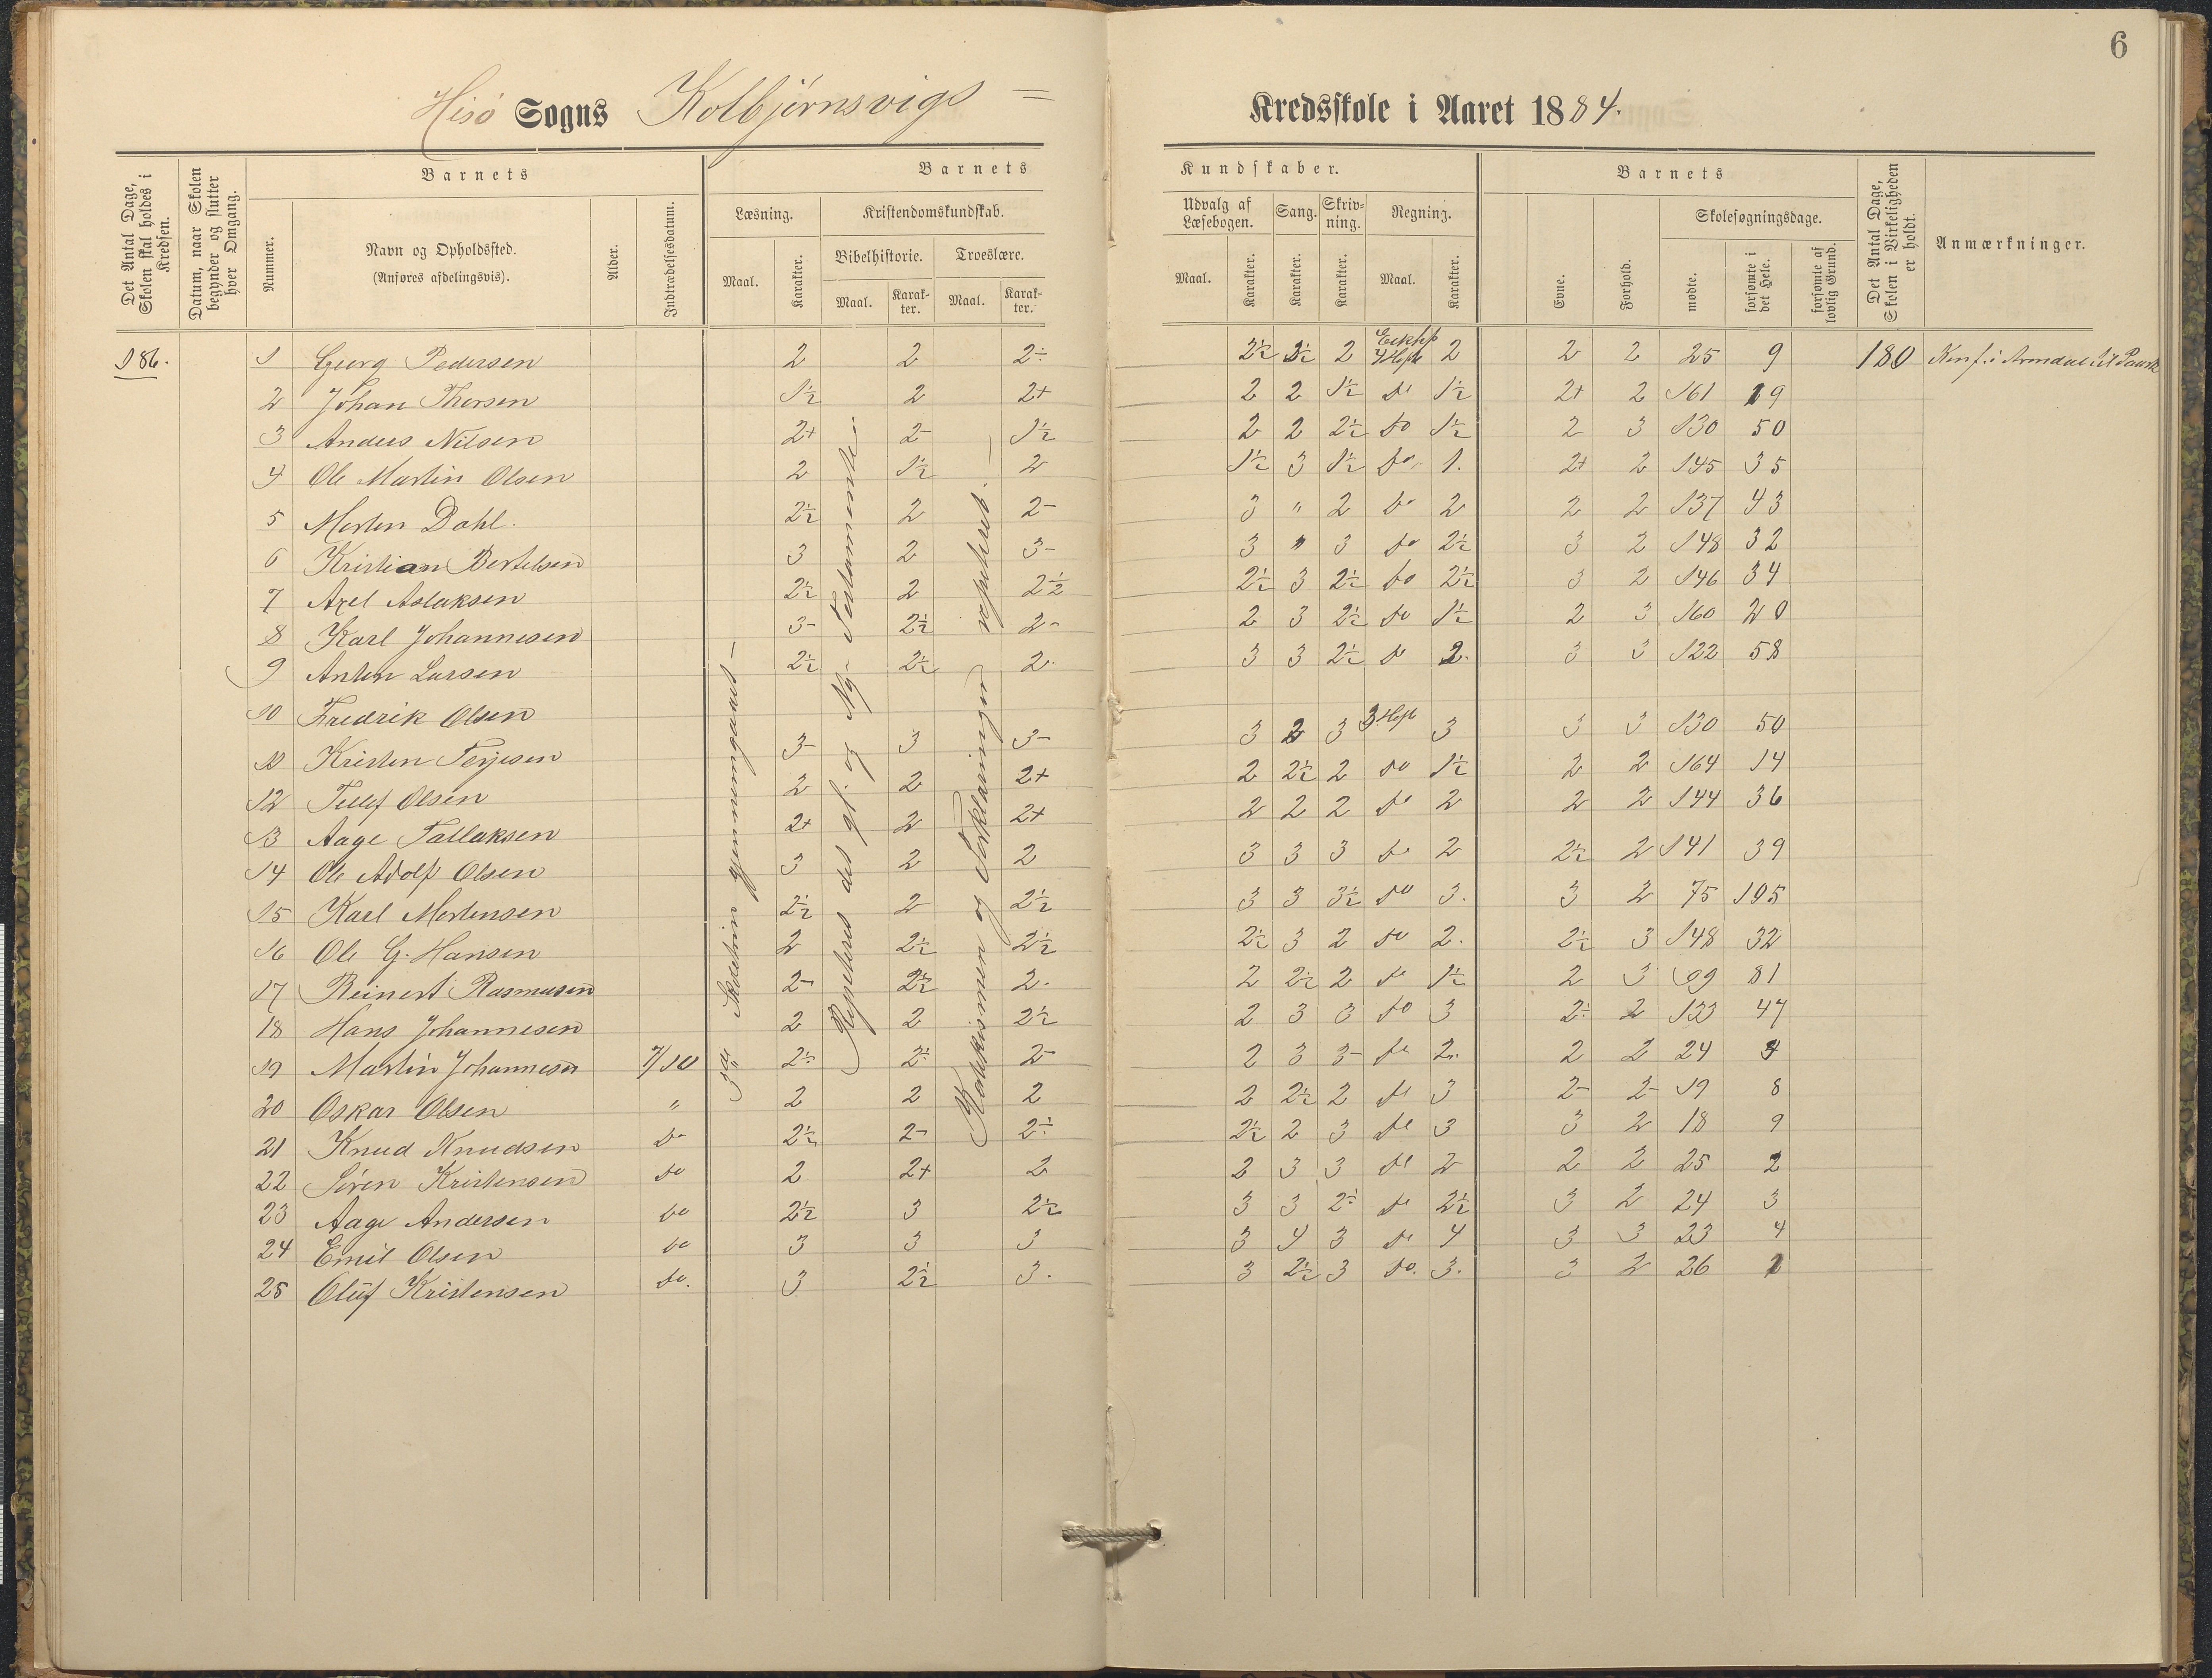 6
Hisö Sogns Kolbjörnsvigs = Kredsskole i Aaret 1884.
Det Antal Dage, Skolen skal holdes i Kredsen.
Datum, naar Skolen begynder og slutter hver Omgang.
Barnets
Nummer.
Navn og Opholdssted.
(Anføres afdelingsvis).
Alder.
Indtrædelsesdatum.
Barnets Kundskaber.
Læsning.
Maal.
Karakter.
Kristendomskundskab.
Bibelhistorie.
Maal.
Karakter.
Troeslære.
Maal.
Karakter.
Udvalg af Læsebogen.
Maal.
Karakter.
Sang.
Karakter.
Skrivning.
Karakter.
Regning.
Maal.
Karakter.
Barnets
Evne.
Forhold.
Skolesøgningsdage.
mødte.
forsømte i det Hele.
forsømte af lovlig Grund.
Det Antal Dage, Skolen i Virkeligheden er holdt.
Anmærkninger.
186. 1 Georg Pedersen 2 2 2÷ 2½ 2½ 2 4 Hefte 2 2 2 25 9 180
2 Johan Thorsen 1½ 2 2+ 2 2 1½ do 1½ 2+ 2 161 19
3 Anders Nilsen 2+ 2- 1½ 2 2 2½ do 1½ 2 3 130 50
4 Ole Martin Olsen 2 1½ 2 1½ 3 1½ do 1. 2+ 2 145 35
5 Morten Dahl. 2½ 2 2- 3 " 2 do 2 2 2 137 43
6 Kristian Bertelsen 3 2 3- 3 " 3 do 2½ 3 2 148 32
7 Axel Aslaksen 2½ 2 2½ 2½ 3 2½ do 2½ 3 2 146 34
8 Karl Johannesen 3- 2½ 2- 2 3 2½ do 1½ 2 3 160 20
9 Anton Larsen 2½ 2½ 2. 3 3 2½ do 2. 3 3 122 58
10 Fredrik Olsen 3- 3 3- 3 2 3 3 Heft 3 3 3 130 50
11 Kristen Terjesen 2 2 2+ 2 2½ 2 do 1½ 2 2 164 14
12 Tellef Olsen 2+ 2 2+ 2 2 2 do 2 2 2 144 36
13 Aage Tallaksen 3 2 2 3 3 3 do 2 2½ 2 141 39
14 Ole Adolf Olsen 2½ 2 2½ 3 3 3½ do 3. 3 2 75 105
15 Karl Mortensen 2 2½ 2½ 2½ 3 2 do 2. 2½ 3 148 32
16 Ole G. Hansen 2- 2½ 2. 2 2½ 2 do 1½ 2 3 99 81
17 Reinert Rasmusen 2 2 2½ 2 3 3 do 3 2÷ 2 133 47
18 Hans Johannesen
19 Martin Johannesen 7/10 2÷ 2÷ 2- 2 3 3- do 2. 2 2 24 4
20 Oskar Olsen " 2 2 2 2 2½ 2 do 3 2- 2- 19 8
21 Knud Knudsen do 2½ 2- 2÷ 2½ 2 3 do 3 3 2 18 9
22 Sören Kristensen do 2 2+ 2 2 3 3 do 2 2 2 25 2
23 Aage Andersen do 2½ 3 2½ 3 3 2÷ do 2½ 3 2 24 3
24 Emil Olsen do 3 3 3 3 4 3 do 4 3 3 23 4
25 Oluf Kristensen do. 3 2½ 3. 3 2½ 3 do. 3. 3 2 26 1
3die Skoletrin gjennemgaaet -
Repeteret det gl. og Ny- Testamente.
Katekismen og Forklaringen repeteret.